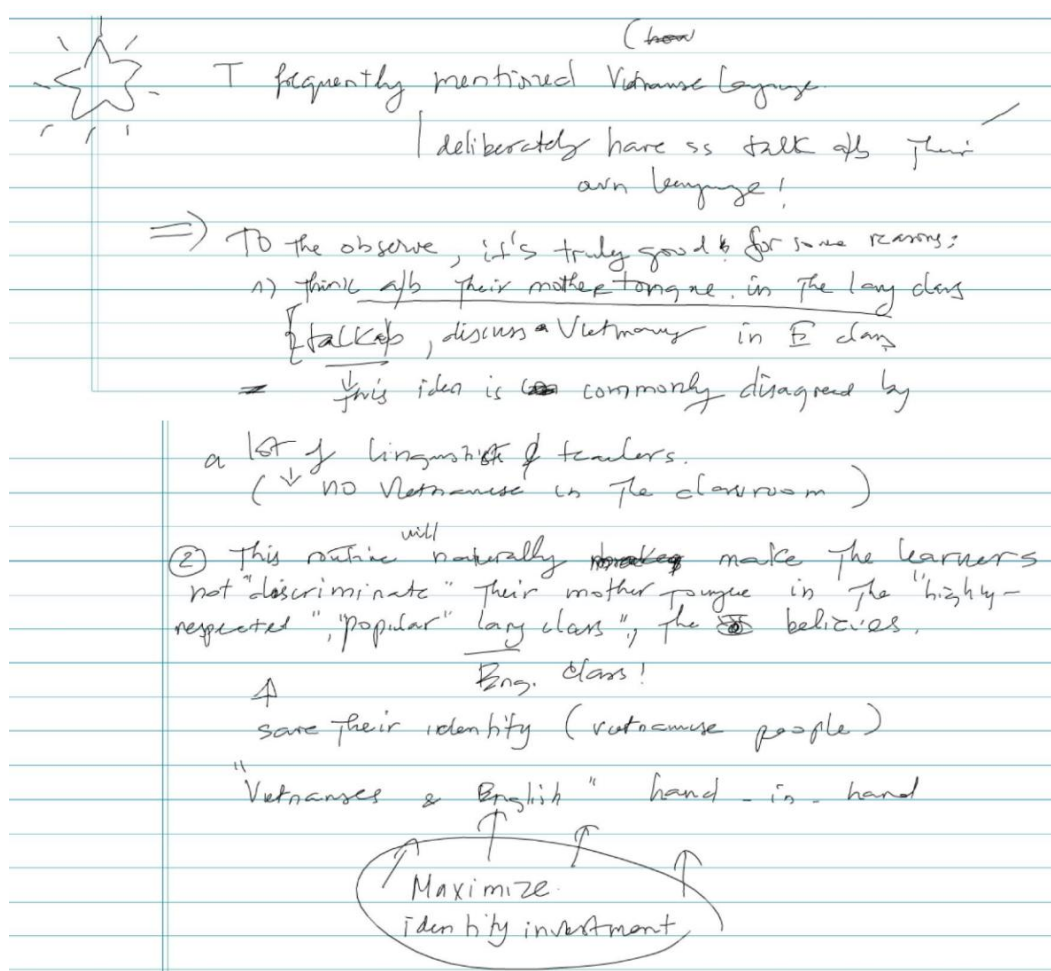 (how
T frequently mentioned Vietnamse language.
deliberately have ss talk a/b their
own language!
=> To the observe, it's truly good for some reasons:
1) think a/b their mother tongue. in the lang class
talk a/b, discuss Vietnamese in E class
= this idea is commonly disagreed by
a lot of linguistists & teachers.
(↓ no Vietnamese in the classroom)
② This routine will naturally make the learners
not "discriminate" their mother tongue in the "highly-
respected", "popular" lang class", the believes.
Eng. class!
save their identity (vietnamese people)
"Vietnamses & English" hand-in-hand
Maximize
identity investment